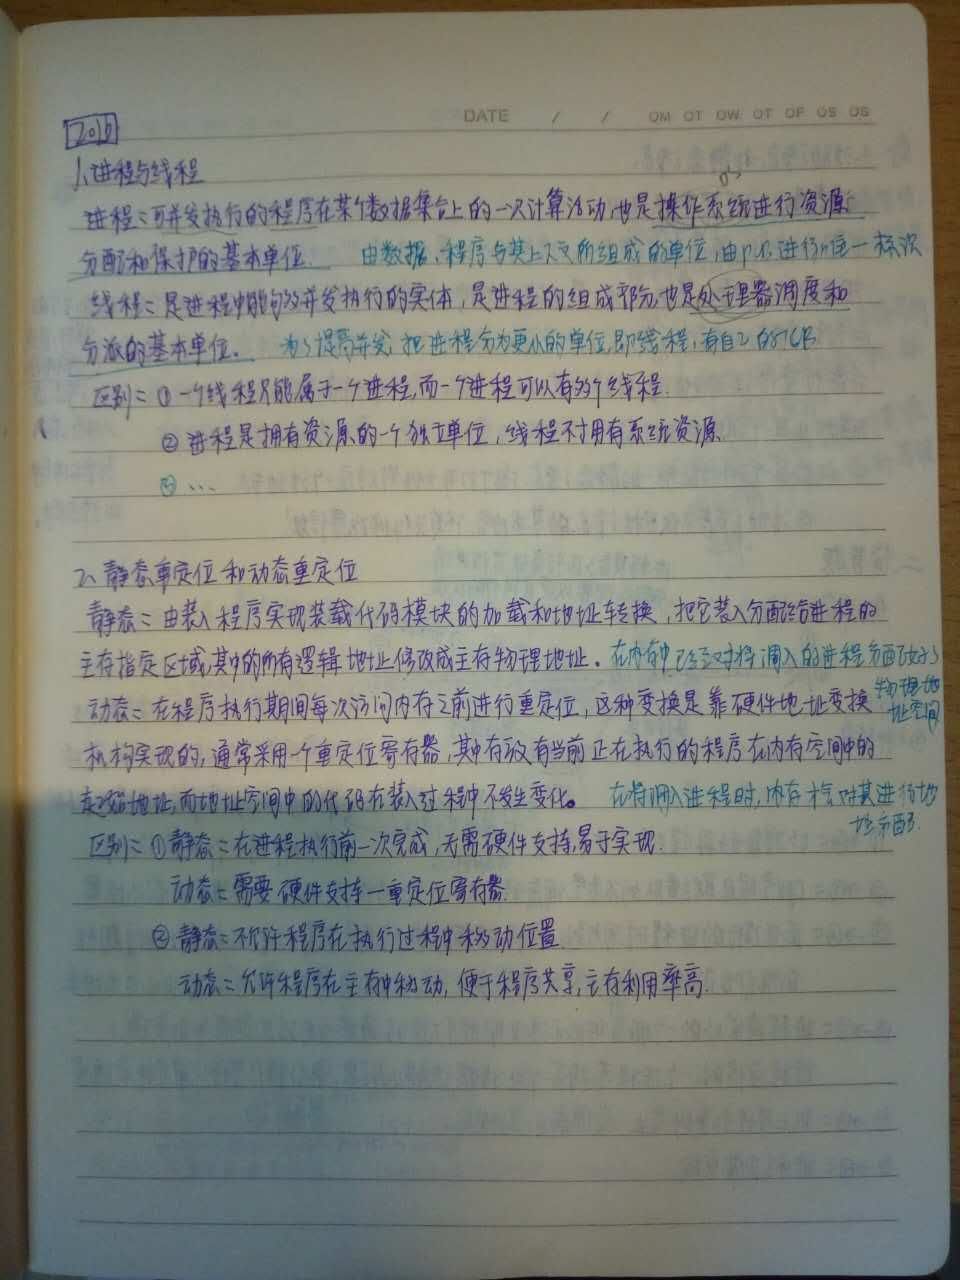 DATE / / OM OT OW OT OF OS OS
2016
1、进程与线程
OS
进程:可并发执行的程序在某个数据集合上的一次计算活动,也是操作系统进行资源
分配和保护的基本单位. 由数据、程序与其上下文所组成的单位,由 进行唯一标识
线程:是进程中能够并发执行的实体,是进程的组成部分,也是处理器调度和
分派的基本单位。 为了提高并发,把进程分为更小的单位,即线程,有自己的TCB
区别:①一个线程只能属于一个进程,而一个进程可以有多个线程.
②进程是拥有资源的一个独立单位,线程不拥有系统资源.
③...
2、静态重定位和动态重定位
静态:由装入程序实现装载代码模块的加载和地址转换,把它装入分配给进程的
主存指定区域,其中的所有逻辑地址修改成主存物理地址. 在内存中已经对将调入的进程分配好了
物理地
址空间
动态:在程序执行期间每次访问内存之前进行重定位,这种变换是靠硬件地址变换
机构实现的,通常采用一个重定位寄存器,其中存放有当前正在执行的程序在内存空间中的
起始地址,而地址空间中的代码在装入过程中不发生变化。 在将调入进程时,内存才会对其进行地
址分配.
区别:①静态:在进程执行前一次完成,无需硬件支持,易于实现.
动态:需要硬件支持—重定位寄存器.
②静态:不允许程序在执行过程中移动位置.
动态:允许程序在主存中移动,便于程序共享,主存利用率高.